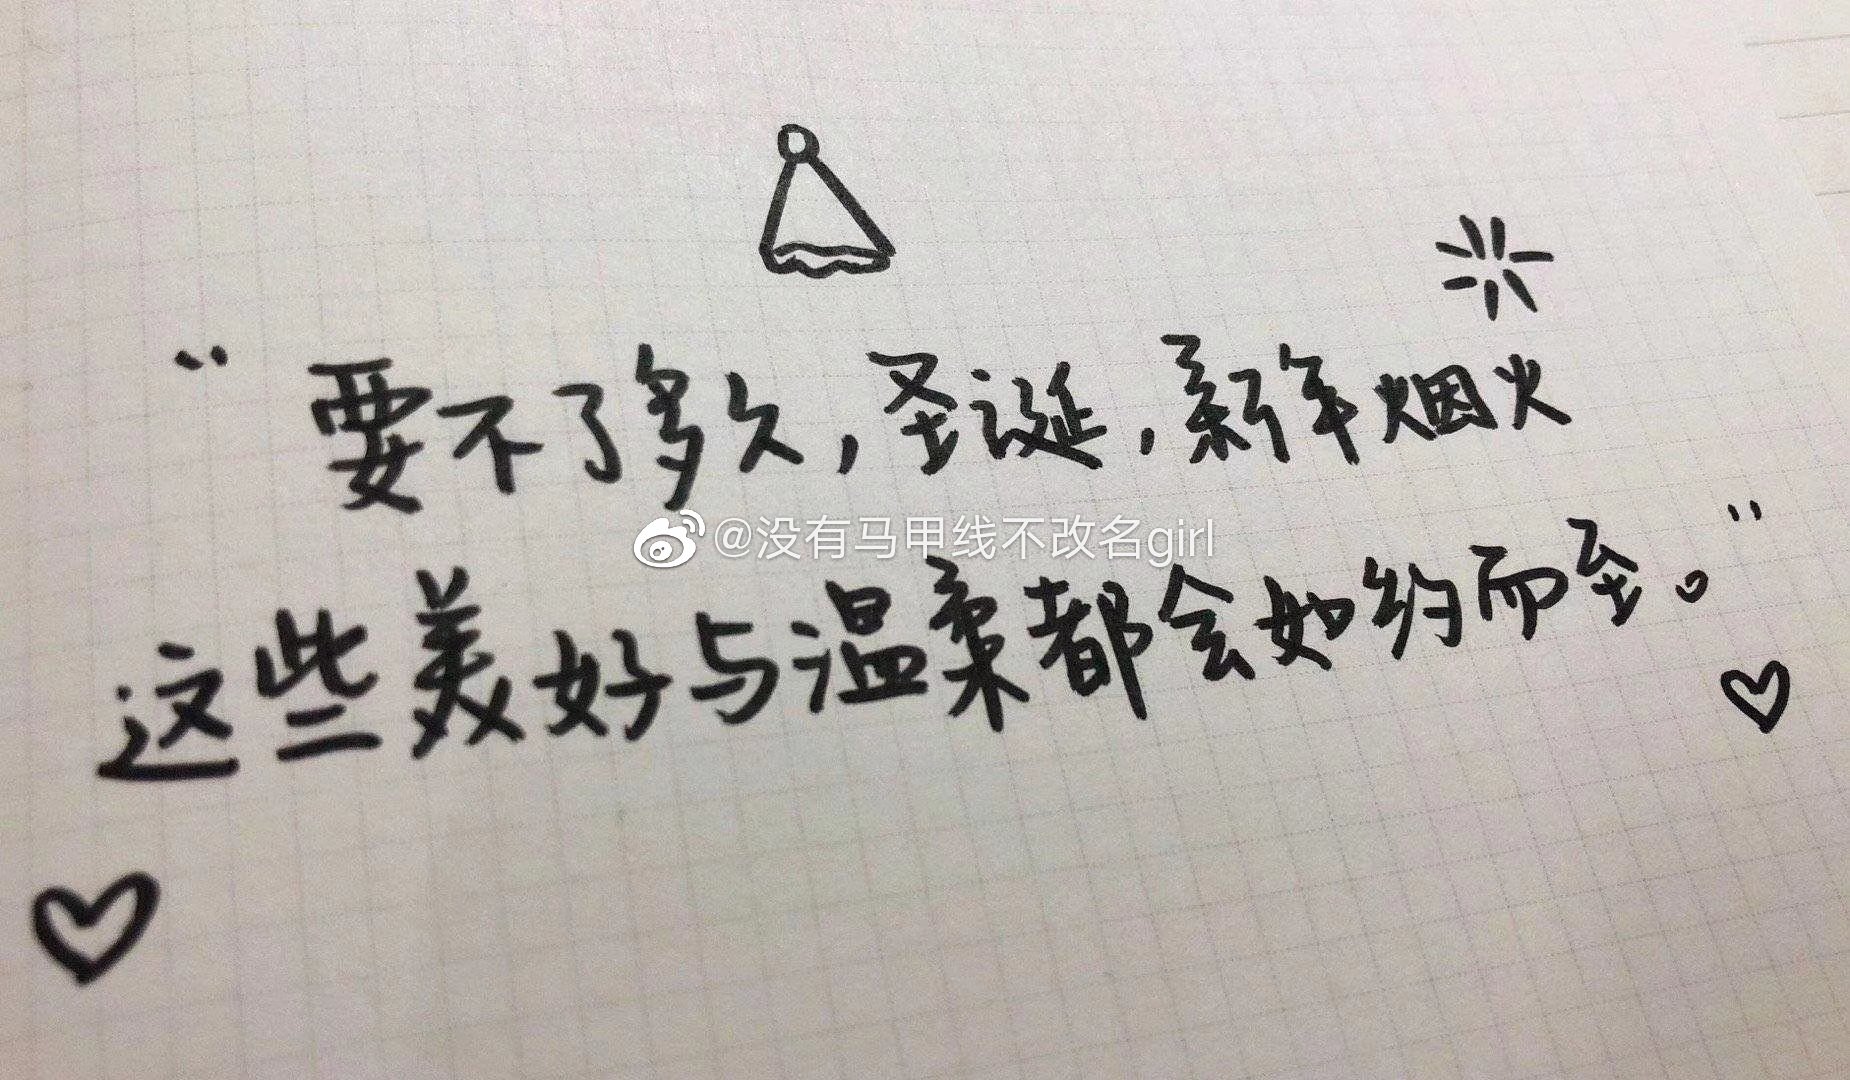 “要不了多久，圣诞，新年烟火
@没有马甲线不改名girl
这些美好与温柔都会如约而至。”